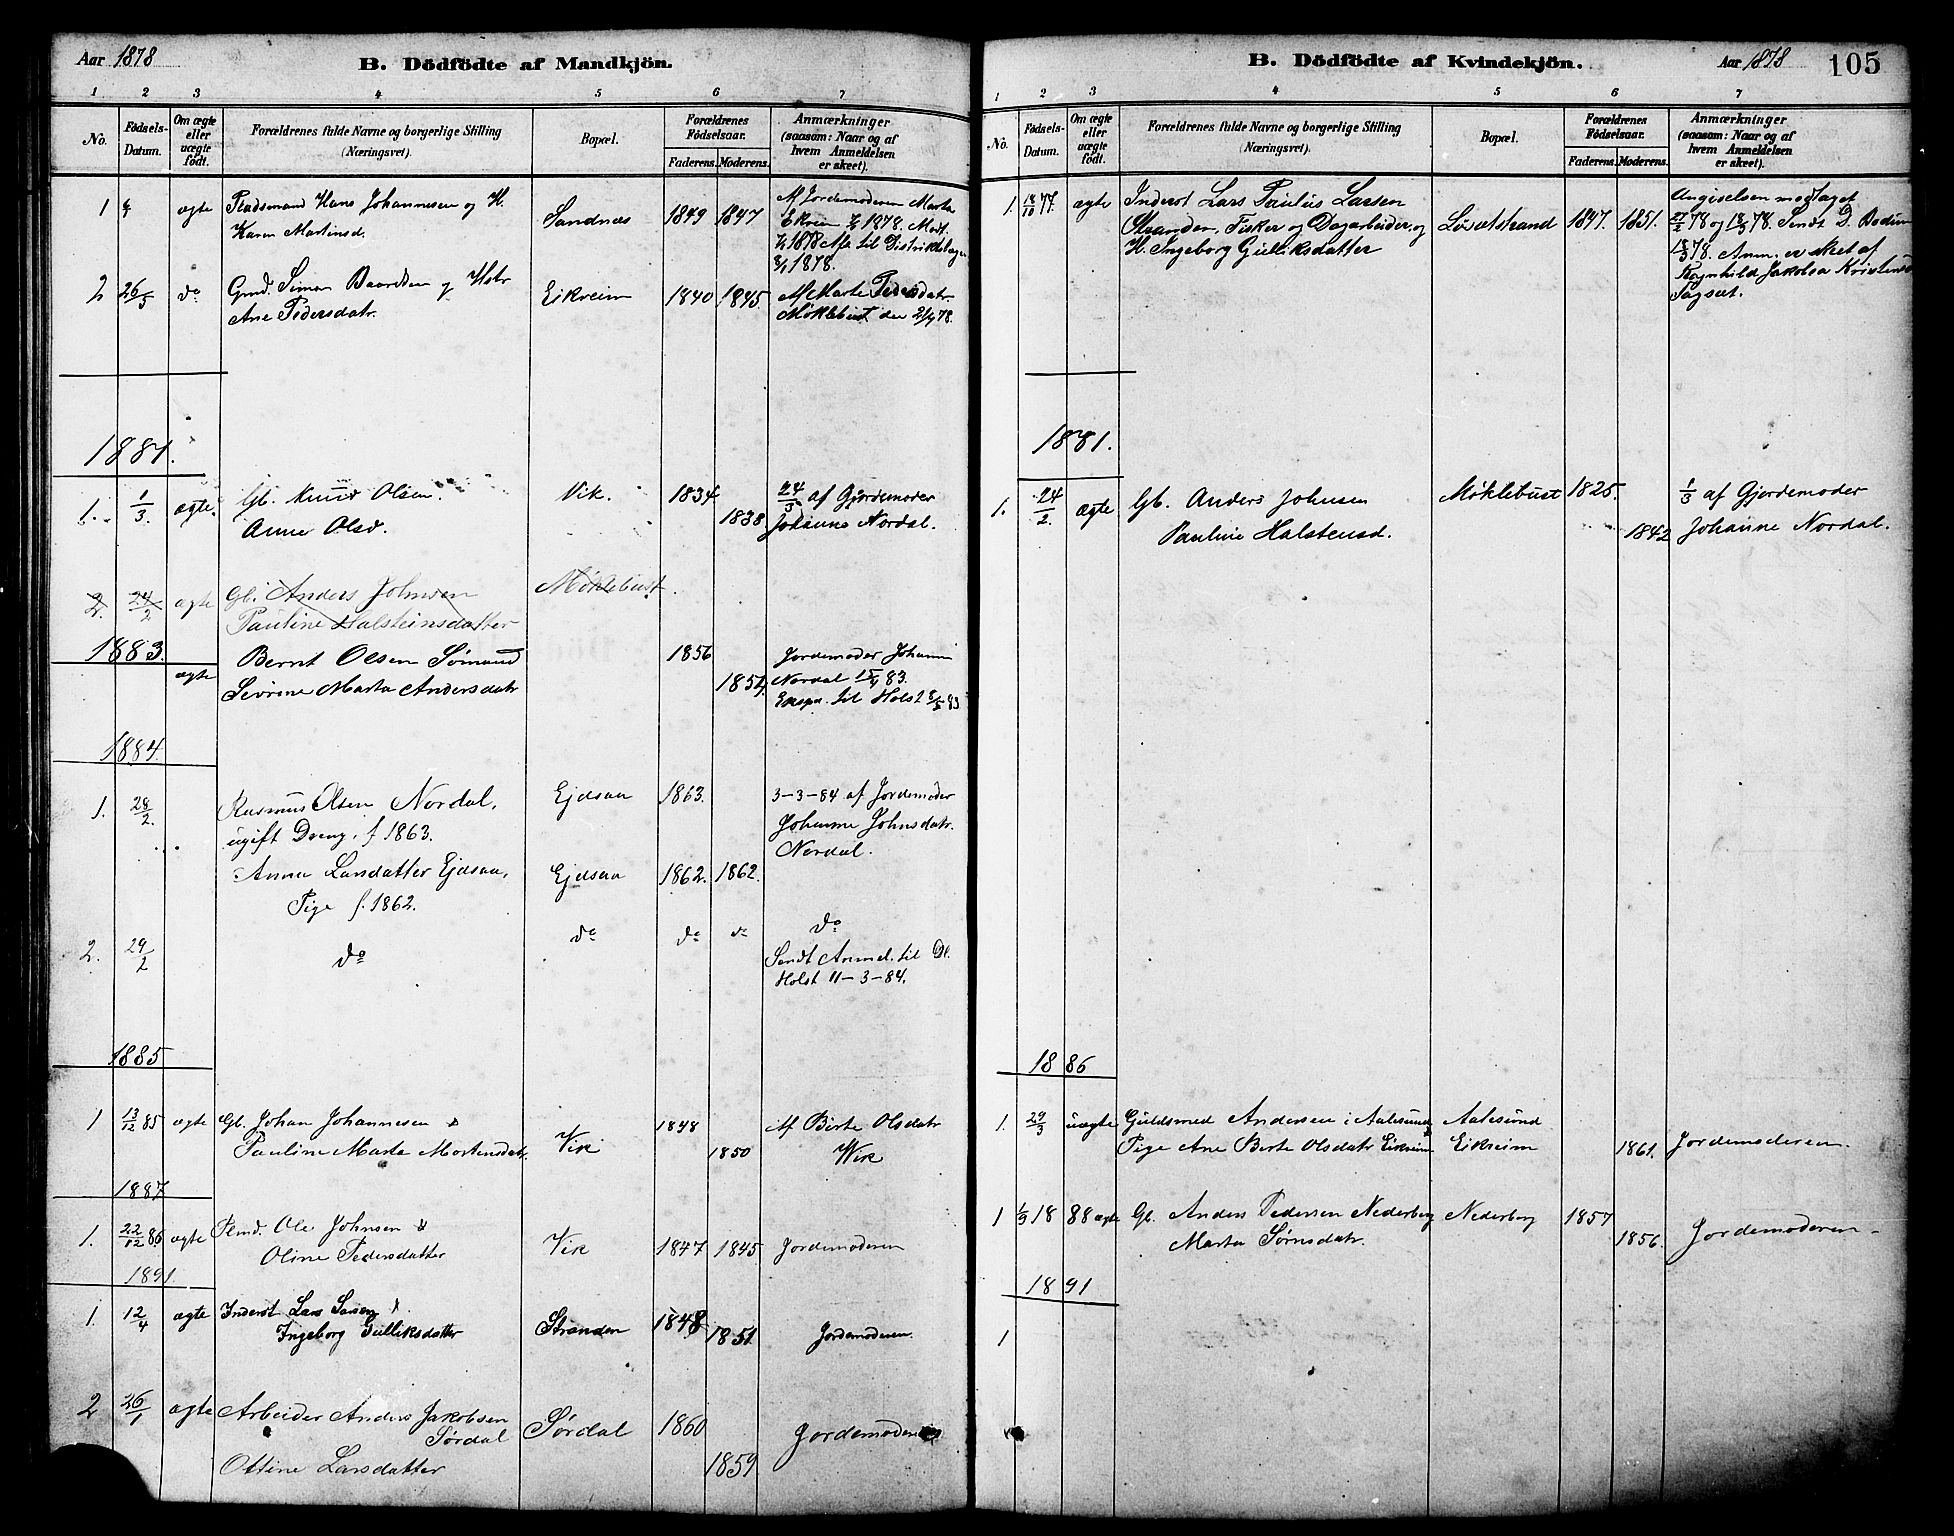 Aar 1878
B. Dödfödte af Mandkjön.
1 2 3 4 5 6 7
No.
Födsels-Datum.
Om ægte eller uægte født.
Forældrenes fulde Navne og borgerlige Stilling
(Næringsvei).
Bopæl.
Forældrenes Födselsaar.
Faderens. Moderens.
Anmærkninger
(saasom: Naar og af
hvem Anmeldelsen
er skeet).
1 ægte Pladsmand Hans Johannesen og H. Sandnes 1849 1847 Af Jordemoderen Marta
Karen Martinsd.
1878
8/1 1878.
2 26/5 do Gmd. Simon Baardsen og Hstr Eikreim 1840 1845 Af Marte Pedersdatr
Ane Pedersdatr. Möklebust den
1881.
1. 1/3. ægte. Gb. Knud Olsen. Vik. 1834 24/3 af Gjordemoder
Anne Olsd. 1838 Johanne Nordal.
2. 24/2 ægte Gb. Anders Johnsen Möklebust.
Pauline Halsteinsdatter
1883.
ægte Bernt Olsen Sömand 1856 Jordemoder Johanne
Sevrine Marta Andersdatr 1854. Nordal 15/4 83.
til Holst 8/5 83
1884.
1. 28/2. Rasmus Olsen Nordal, Ejdsaa 1863. 3-3-84 af Jordemoder
ugift Dreng. f 1863. Johanne Johnsdatr.
Nordal.
Anna Larsdatter Ejdsaa, Ejdsaa 1862. 1862.
Pige f. 1862.
2. 29/2 do do do do do
Sendt Anmel. til Dl.
Holst 11-3-84.
1885
1 13/12 85 ægte Gb. Johan Johannesen & Vik 1848 Af Birte Olsdatr
Pauline Marta Mortensdatr. 1850 Wik
1887
1. 22/12 86 ægte Plmd. Ole Johnsen & Vik 1847 1845 Jordemoderen
Oline Pedersdatter
1891.
1. 12/4 ægte Inderst Lars Larsen & Stranden 1848 1851 Jordemoderen.
Ingeborg Gulliksdatter
2 26/1 ægte Arbeider Anders Jakobsen Sördal 1860 Jordemoderen
Sördal
Ottine Larsdatter 1859
B. Dödfödte af Kvindekjön.
Aar 1878
105
1 2 3 4 5 6 7
No.
Födsels-Datum.
Om ægte eller uægte født.
Forældrenes fulde Navne og borgerlige Stilling
(Næringsvei).
Bopæl.
Forældrenes Födselsaar.
Faderens. Moderens.
Anmærkninger
(saasom: Naar og af
hvem Anmeldelsen
er skeet).
1. 18/10 77. ægte Inderst Lars Paulus Larsen Lösetstrand 1847. 1851. Angivelsen modtaget
Stranden, Fisker og Dagarbeider, og 27/2 78 og 18/3 78. Sendt D. Bodum
H. Ingeborg Gulliksdatter 18/3 78. Anm. er skeet af
Ragnhild Jakobea Kristensd
Sagset.
1881.
1. 24/2 ægte Gb. Anders Johnsen Möklebust 1825. 1/3 af Gjordemoder
Pauline Halstensd. 1842 Johanne Nordal.
1886
1. 29/3 uægte Guldsmed Andersen i Aalesund Aalesund
Pige Ane Berte Olsdatr Eikreim Eikreim 1861. Jordemoderen.
1 1/9 1888 ægte Gb. Anders Pedersen Nederberg Nederberg 1857 Jordemoderen
Marta Sörnsdatr. 1856.
1891
1